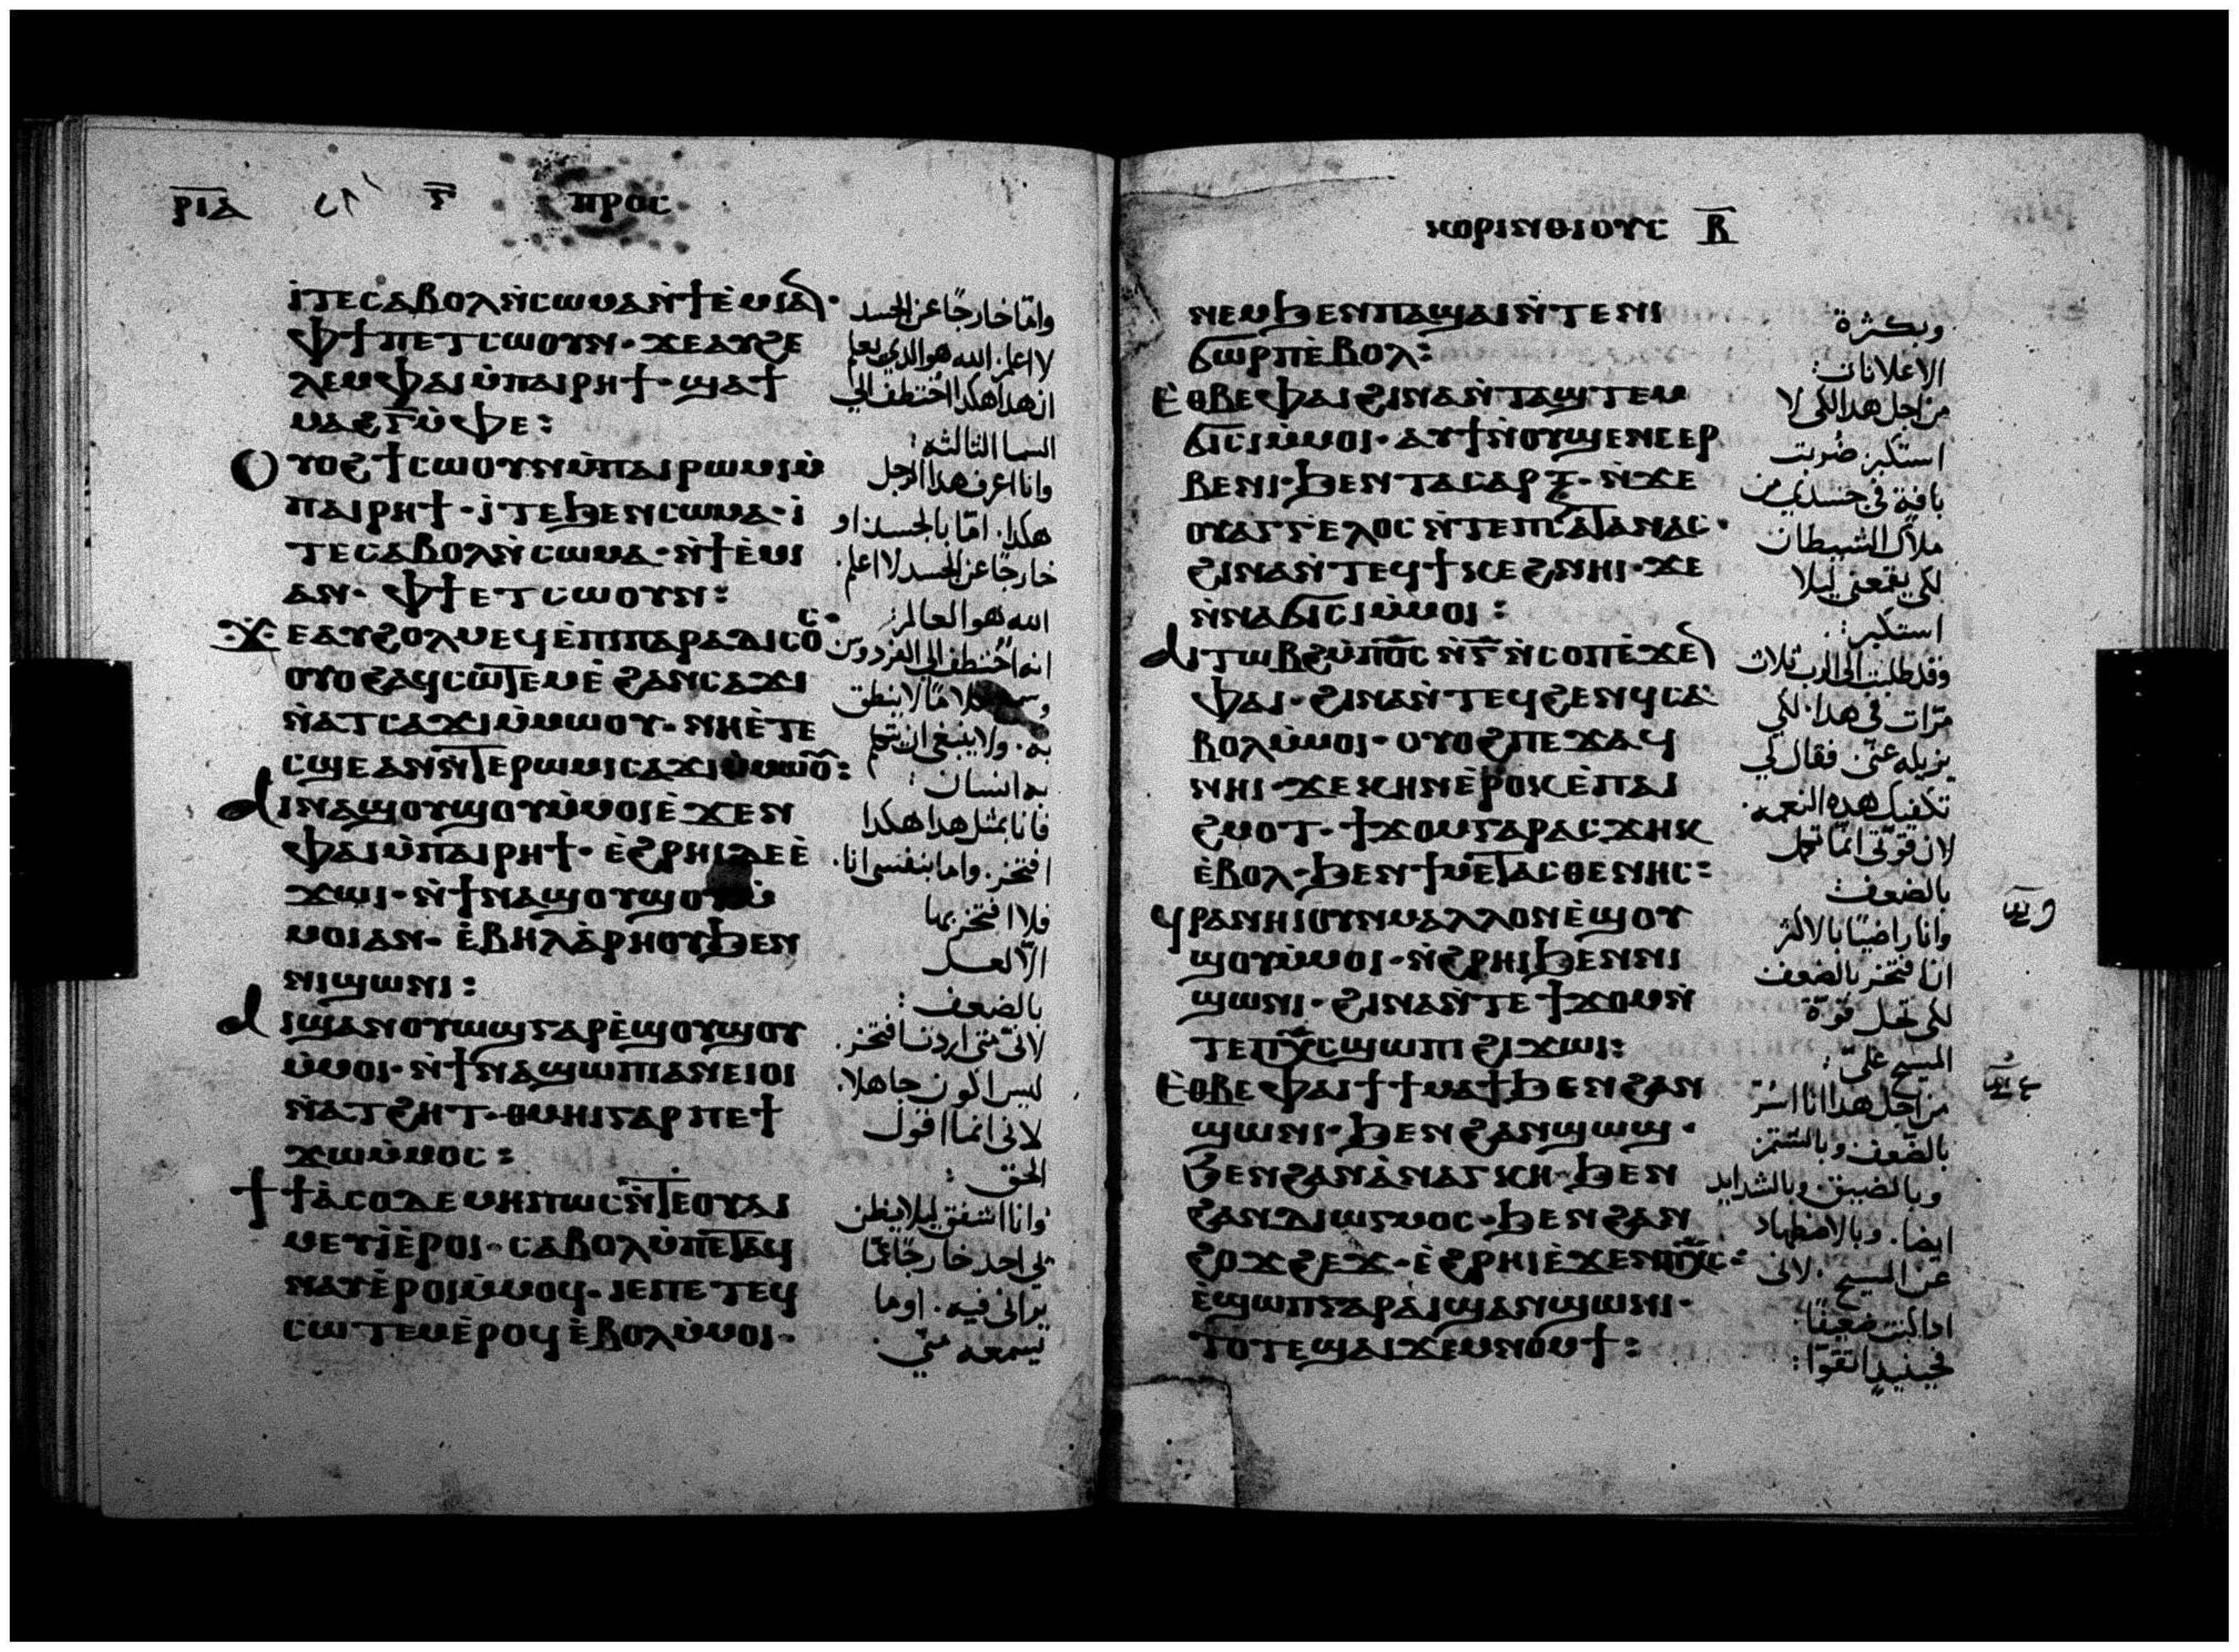 ⲣⲓⲁ ⲅ̅ ⲡⲣⲟⲥ
ⲓ̀ⲧⲉⲥⲁⲃⲟⲗⲛ̀ⲥⲱⲙⲁⲛ̀ϯⲉ̀ⲙⲓⲁⲛ·
ⲫϯⲡⲉⲧⲥⲱⲟⲩⲛ· ϫⲉⲁⲩϩⲉ
ⲗⲉⲙⲫⲁⲓⲙ̀ⲡⲁⲓⲣⲏϯ· ϣⲁϯ
ⲙⲁϩⲅ̅ⲙ̀ⲫⲉ:
ⲟⲩⲟϩϯⲥⲱⲟⲩⲛⲙ̀ⲡⲁⲓⲣⲱⲙⲓⲙ̀
ⲡⲁⲓⲣⲏϯ· ⲓ̀ⲧⲉϧⲉⲛⲥⲱⲙⲁ· ⲓ̀
ⲧⲉⲥⲁⲃⲟⲗⲛ̀ⲥⲱⲙⲁ· ⲛ̀ϯⲉ̀ⲙⲓ
ⲁⲛ· ⲫϯⲉⲧⲥⲱⲟⲩⲛ:
ϫⲉⲁⲩϩⲟⲗⲙⲉϥⲉ̀ⲡⲓⲡⲁⲣⲁⲇⲓⲥⲟⲥ·
ⲟⲩⲟϩⲁϥⲥⲱⲧⲉⲙⲉ̀ϩⲁⲛⲥⲁϫⲓ
ⲛ̀ⲁⲧⲥⲁϫⲓⲙ̀ⲙⲱⲟⲩ· ⲛⲏⲉ̀ⲧⲉ
ⲥϣⲉⲁⲛⲛ̀ⲧⲉⲣⲱⲙⲓⲥⲁϫⲓⲙ̀ⲙⲱⲟⲩ:
ϯⲛⲁϣⲟⲩϣⲟⲩⲙ̀ⲙⲟⲓⲉ̀ϫⲉⲛ
ⲫⲁⲓⲙ̀ⲡⲁⲓⲣⲏϯ· ⲉ̀ϩⲣⲏⲓⲇⲉⲉ̀
ϫⲱⲓ· ⲛ̀ϯⲛⲁϣⲟⲩϣⲟⲩⲙ̀
ⲙⲟⲓⲁⲛ· ⲉ̀ⲃⲏⲗⲁ̀ⲣⲏⲟⲩϧⲉⲛ
ⲛⲓϣⲱⲛⲓ:
ⲁⲓϣⲁⲛⲟⲩⲱϣⲅⲁⲣⲉ̀ϣⲟⲩϣⲟⲩ
ⲙ̀ⲙⲟⲓ· ⲛ̀ϯⲛⲁϣⲱⲡⲓⲁⲛⲉⲓⲟⲓ
ⲛ̀ⲁⲧϩⲏⲧ· ⲑⲙⲏⲓⲅⲁⲣⲡⲉϯ
ϫⲱⲙ̀ⲙⲟⲥ:
ϯϯⲁ̀ⲥⲟⲇⲉⲙⲏⲡⲱⲥⲛ̀ⲧⲉⲟⲩⲁⲓ
ⲙⲉⲩⲓ̀ⲉ̀ⲣⲟⲓ· ⲥⲁⲃⲟⲗⲙ̀ⲡⲉⲧⲁϥ
ⲛⲁⲩⲉ̀ⲣⲟⲓⲙ̀ⲙⲟϥ· ⲓⲉⲡⲉⲧⲉϥ
ⲥⲱⲧⲉⲙⲉ̀ⲣⲟϥⲉ̀ⲃⲟⲗⲙ̀ⲙⲟⲓ·
وامّا خارجًا عن الجسد
لا اعلم. الله هو الدي يعلم
ان هدا هكدا اختطف الي
السما الثالثه:
وانا اعرف هدا الرجل
هكدا. امّا بالجسد. او
خارجًا عن الجسد لا اعلم.
الله هو العالم:
انه اختطف الى الفردوس
به. ولا ينبغي ان يتكلم
به انسان:
فانا بمثل هدا هكدا
افتخر. واما بنفسى انا.
فلا افتخر بها
الّا لعـل
بالضعف:
لانّى متى اردت افتخر.
ليس اكون جاهلا.
لانى انما اقول
الحق:
وانا اشفق ليلا يظن
بي احد خارجًا عمّا
يرانى فيه. او ما
يسمعه منّي.
ⲕⲟⲣⲓⲛⲑⲓⲟⲩⲥ ⲃ̅
ⲛⲉⲙϧⲉⲛⲡⲁϣⲁⲓⲛ̀ⲧⲉⲛⲓ
ϭⲱⲣⲡⲉ̀ⲃⲟⲗ:
ⲉ̀ⲑⲃⲉⲫⲁⲓϩⲓⲛⲁⲛ̀ⲧⲁϣⲧⲉⲙ
ϭⲓⲥⲓⲙ̀ⲙⲟⲓ· ⲁⲩϯⲛ̀ⲟⲩϣⲉⲛⲉⲉⲣ
ⲃⲉⲛⲓ· ϧⲉⲛⲧⲁⲥⲁⲣⲝ· ⲛ̀ϫⲉ
ⲟⲩⲁⲅⲅⲉⲗⲟⲥⲛ̀ⲧⲉⲡⲥⲁⲧⲁⲛⲁⲥ·
ϩⲓⲛⲁⲛ̀ⲧⲉϥϯⲕⲉϩⲛⲏⲓ· ϫⲉ
ⲛ̀ⲛⲁϭⲓⲥⲓⲙ̀ⲙⲟⲓ:
ⲁⲓⲧⲱⲃϩⲙ̀ⲡⲟ̅ⲥ̅ⲛ̀ⲅ̅ⲛ̀ⲥⲟⲡⲉ̀ϫⲉⲛ
ⲫⲁⲓ· ϩⲓⲛⲁⲛ̀ⲧⲉϥϩⲉⲛϥⲥⲁ
ⲃⲟⲗⲙ̀ⲙⲟⲓ· ⲟⲩⲟϩⲡⲉϫⲁϥ
ⲛⲏⲓ· ϫⲉⲕⲏⲛⲉ̀ⲣⲟⲕⲉ̀ⲡⲁⲓ
ϩⲙⲟⲧ· ϯϫⲟⲙⲅⲁⲣⲁⲥϫⲏⲕ
ⲉ̀ⲃⲟⲗ· ϧⲉⲛϯⲙⲉⲧⲁⲥⲑⲉⲛⲏⲥ:
ϥⲣⲁⲛⲏⲓⲟⲩⲛⲙⲁⲗⲗⲟⲛⲉ̀ϣⲟⲩ
ϣⲟⲩⲙ̀ⲙⲟⲓ· ⲛ̀ϩⲣⲏⲓϧⲉⲛⲛⲓ
ϣⲱⲛⲓ· ϩⲓⲛⲁⲛ̀ⲧⲉϯϫⲟⲙⲛ̀
ⲧⲉⲡⲭ̅ⲥ̅ϣⲱⲡⲓϩⲓϫⲱⲓ:
ⲉ̀ⲑⲃⲉⲫⲁⲓϯϯⲙⲁϯϧⲉⲛϩⲁⲛ
ϣⲱⲛⲓ· ϧⲉⲛϩⲁⲛϣⲱϣ·
ϧⲉⲛϩⲁⲛⲁ̀ⲛⲁⲅⲕⲏ· ϧⲉⲛ
ϩⲁⲛⲇⲓⲱⲅⲙⲟⲥ· ϧⲉⲛϩⲁⲛ
ϩⲟϫϩⲉϫ· ⲉ̀ϩⲣⲏⲓⲉ̀ϫⲉⲛⲡⲭ̅ⲥ̅·
ⲉ̀ϣⲱⲡⲅⲁⲣⲁ̀ⲓϣⲁⲛϣⲱⲛⲓ·
ⲧⲟⲧⲉϣⲁⲓϫⲉⲙⲛⲟⲙϯ:
وبكثرة
الاعلانات:
من اجل هدا لكى لا
استكبر. ضربت
بافة في جسدي من
ملاك الشيطان
لكى يقمعنى ليلا
استكبر:
وقد طلبت الى الرب ثلاث
مرّات في هدا. لكي
يزيله عنّى. فقال لي
تكفيك هده النعمه.
لان قوتى انّما تكمل
بالضعف:
وانا راضيًا بالاكثر
ان افتخر بالضعف
لكى تحل قوّة
المسيح عليّ:
من اجل هدا انا اسُرّ
بالضعف وبالشتم
وبالضيق. وبالشدايد
ايضا. وبالاضطهاد
عن المسيح. لانى
ادا كنت ضعيفًا.
فحينيدٍ اتقوّا: